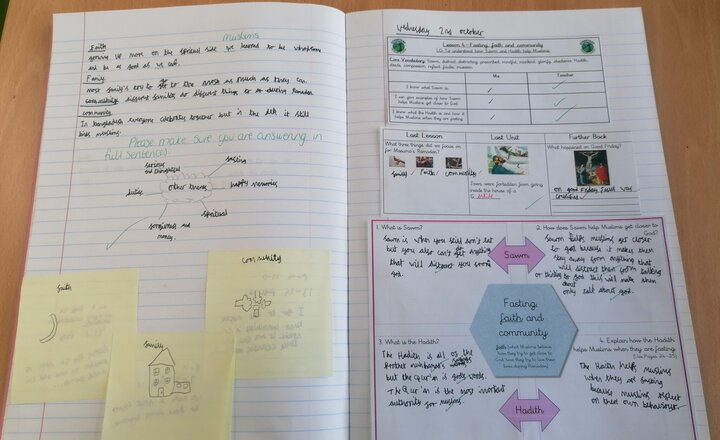 Muslims
Faith
more on the spiritual side we learned to be wholesome
and be as good as we can.
Family
most family's try to get to the most as much as they can.
different families do different things to do during Ramadan
community
In bangladesh everyone celebrates together but in the it still
Muslims.
Please make sure you are answering in
full sentences.
serious
and thoughtful
fasting
duties
other themes
happy memories
spiritual
and
money.
faith
community
family
Wednesday 2nd october
Lesson 4 - Fasting, faith and community
LO: To understand how Sawm and Hadith help Muslims
Core Vocabulary: Sawm, distract, distracting, prescribed, mindful, mankind, glorify, obedience, Hadith, deeds, compassion, reflect, guide, museum
Me
Teacher
I know what Sawm is.
I can give examples of how Sawm
helps Muslims get closer to God.
I know what the Hadith is and how it
helps Muslims when they are fasting.
Last Lesson
Last Unit
Further Back
What three things did we focus on
for Masuma's Ramadan?
family faith community
Jews were forbidden from going
inside the house of a
What happened on Good Friday?
on good Friday Jesus was
crucified
1. What is Sawm?
Sawm is when you still don't eat
but you also can't get anything
that will distract you from
god.
Sawm
2. How does Sawm help Muslims get closer to
God?
Sawm helps muslims get closer
to god because it makes them
stay away from anything that
will distract them from talking
or thinking to god this will make them
about
only talk about god.
Fasting,
faith and
community
faith (what Muslims believe,
how they try to get close to
God, how they try to live their
lives during Ramadan)
3. What is the Hadith?
The Hadith is all of the
Prophet muhhamad's
but the Qur'an is gods words.
The Qur'an is the most important
authority for muslims.
4. Explain how the Hadith
helps Muslims when they are fasting.
(Use Pages 24-25)
The Hadith helps muslims
when they are fasting
because muslims reflect
on their own behaviour.
Hadith